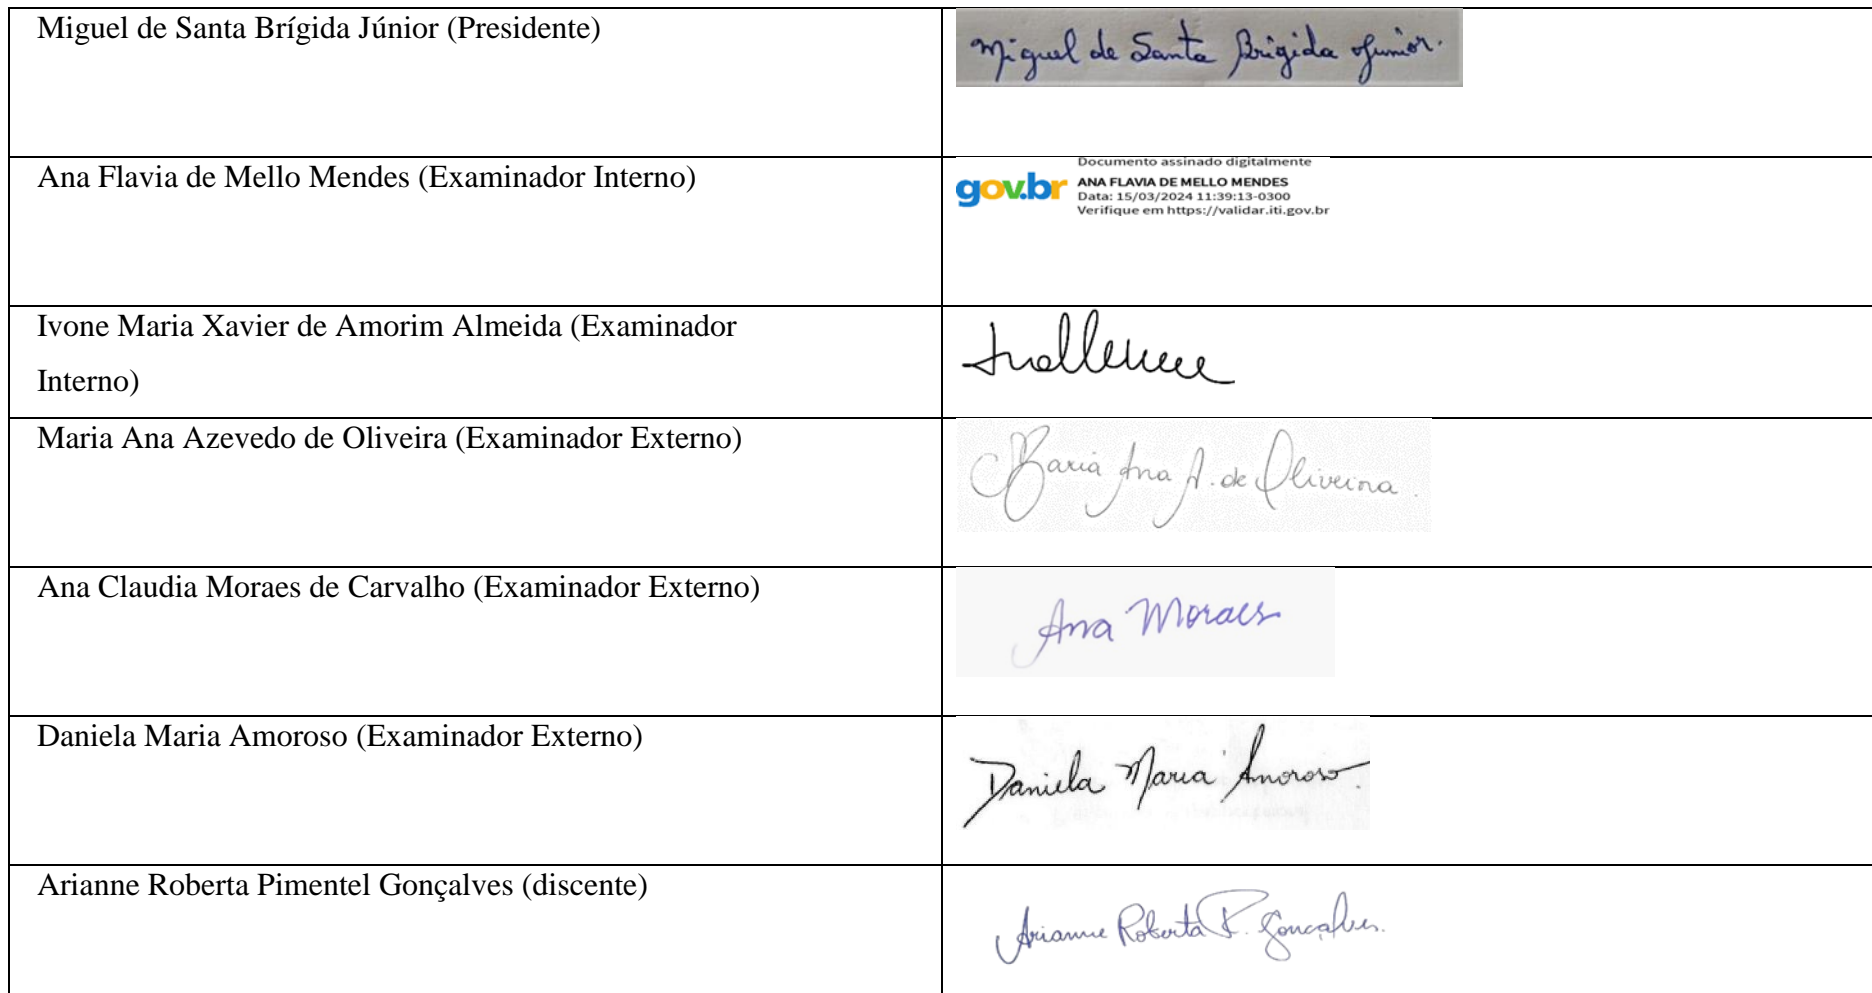 Miguel de Santa Brígida Júnior (Presidente)
Miguel de Santa Brígida Júnior.
Ana Flavia de Mello Mendes (Examinador Interno)
Documento assinado digitalmente
gov.br
ANA FLAVIA DE MELLO MENDES
Data: 15/03/2024 11:39:13-0300
Verifique em https://validar.iti.gov.br
Ivone Maria Xavier de Amorim Almeida (Examinador
Interno)
Maria Ana Azevedo de Oliveira (Examinador Externo)
Maria Ana A. de Oliveira.
Ana Claudia Moraes de Carvalho (Examinador Externo)
Ana Moraes
Daniela Maria Amoroso (Examinador Externo)
Daniela Maria Amoroso.
Arianne Roberta Pimentel Gonçalves (discente)
Arianne Roberta P. Gonçalves.